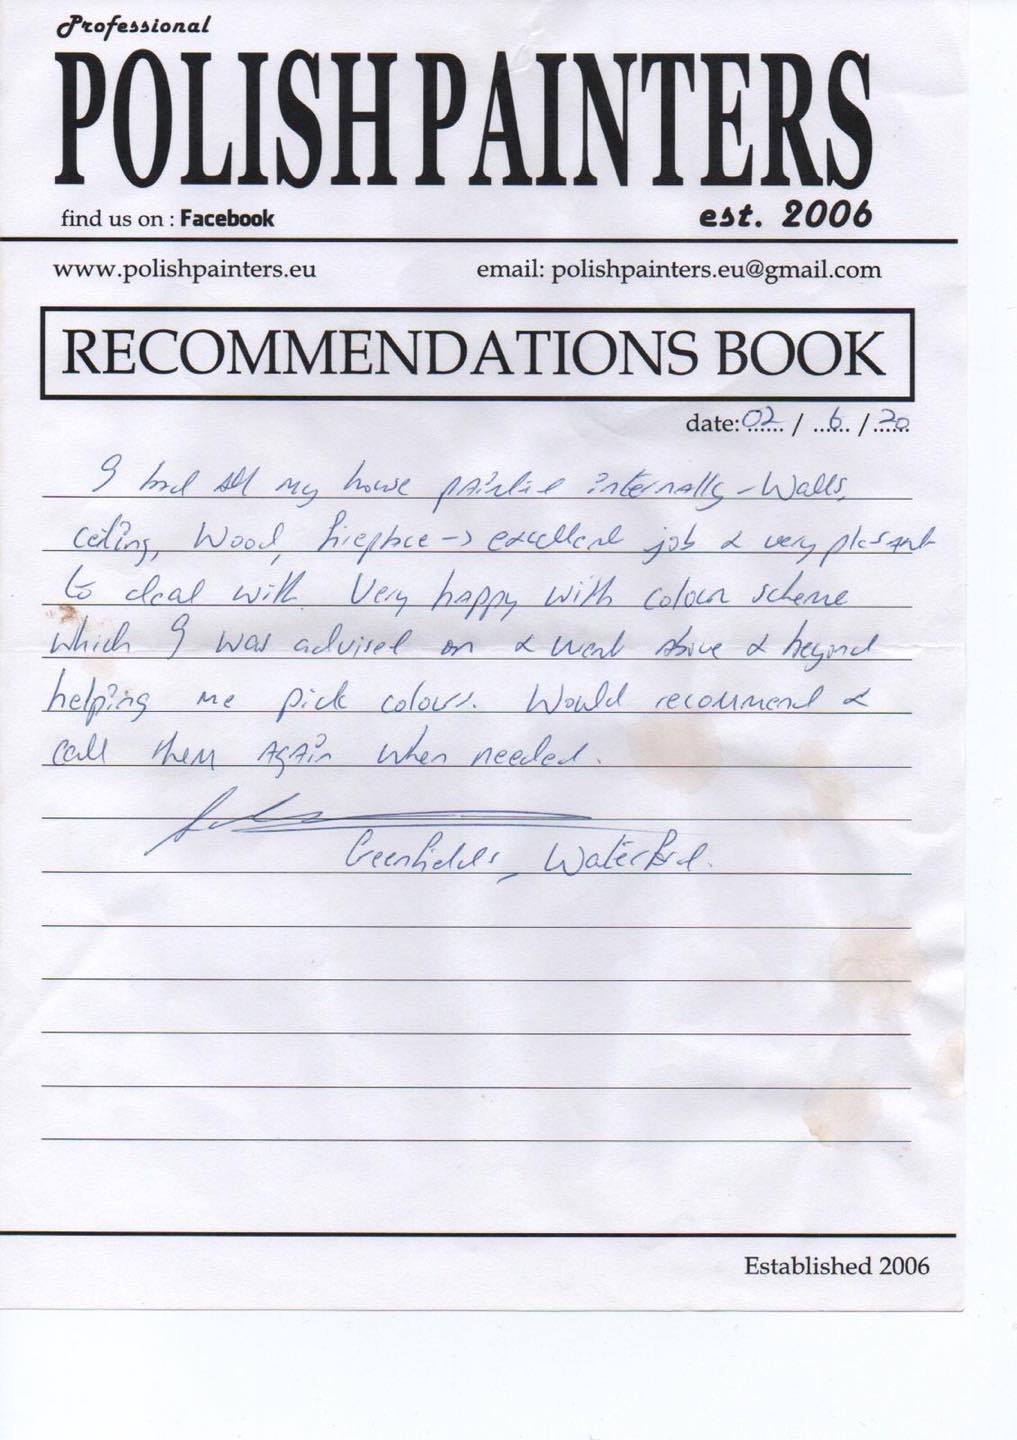 Professional
POLISH PAINTERS
find us on : Facebook
est. 2006
www.polishpainters.eu
email: polishpainters.eu@gmail.com
RECOMMENDATIONS BOOK
date: 02 / 6 / 20
I had all my house painted internally - Walls,
ceiling, Wood, fireplace -> excellent job & very pleasant
to deal with. Very happy with colour scheme
which I was advised on & went above & beyond
helping me pick colours. Would recommend &
call them again when needed.
Greenfields, Waterford.
Established 2006